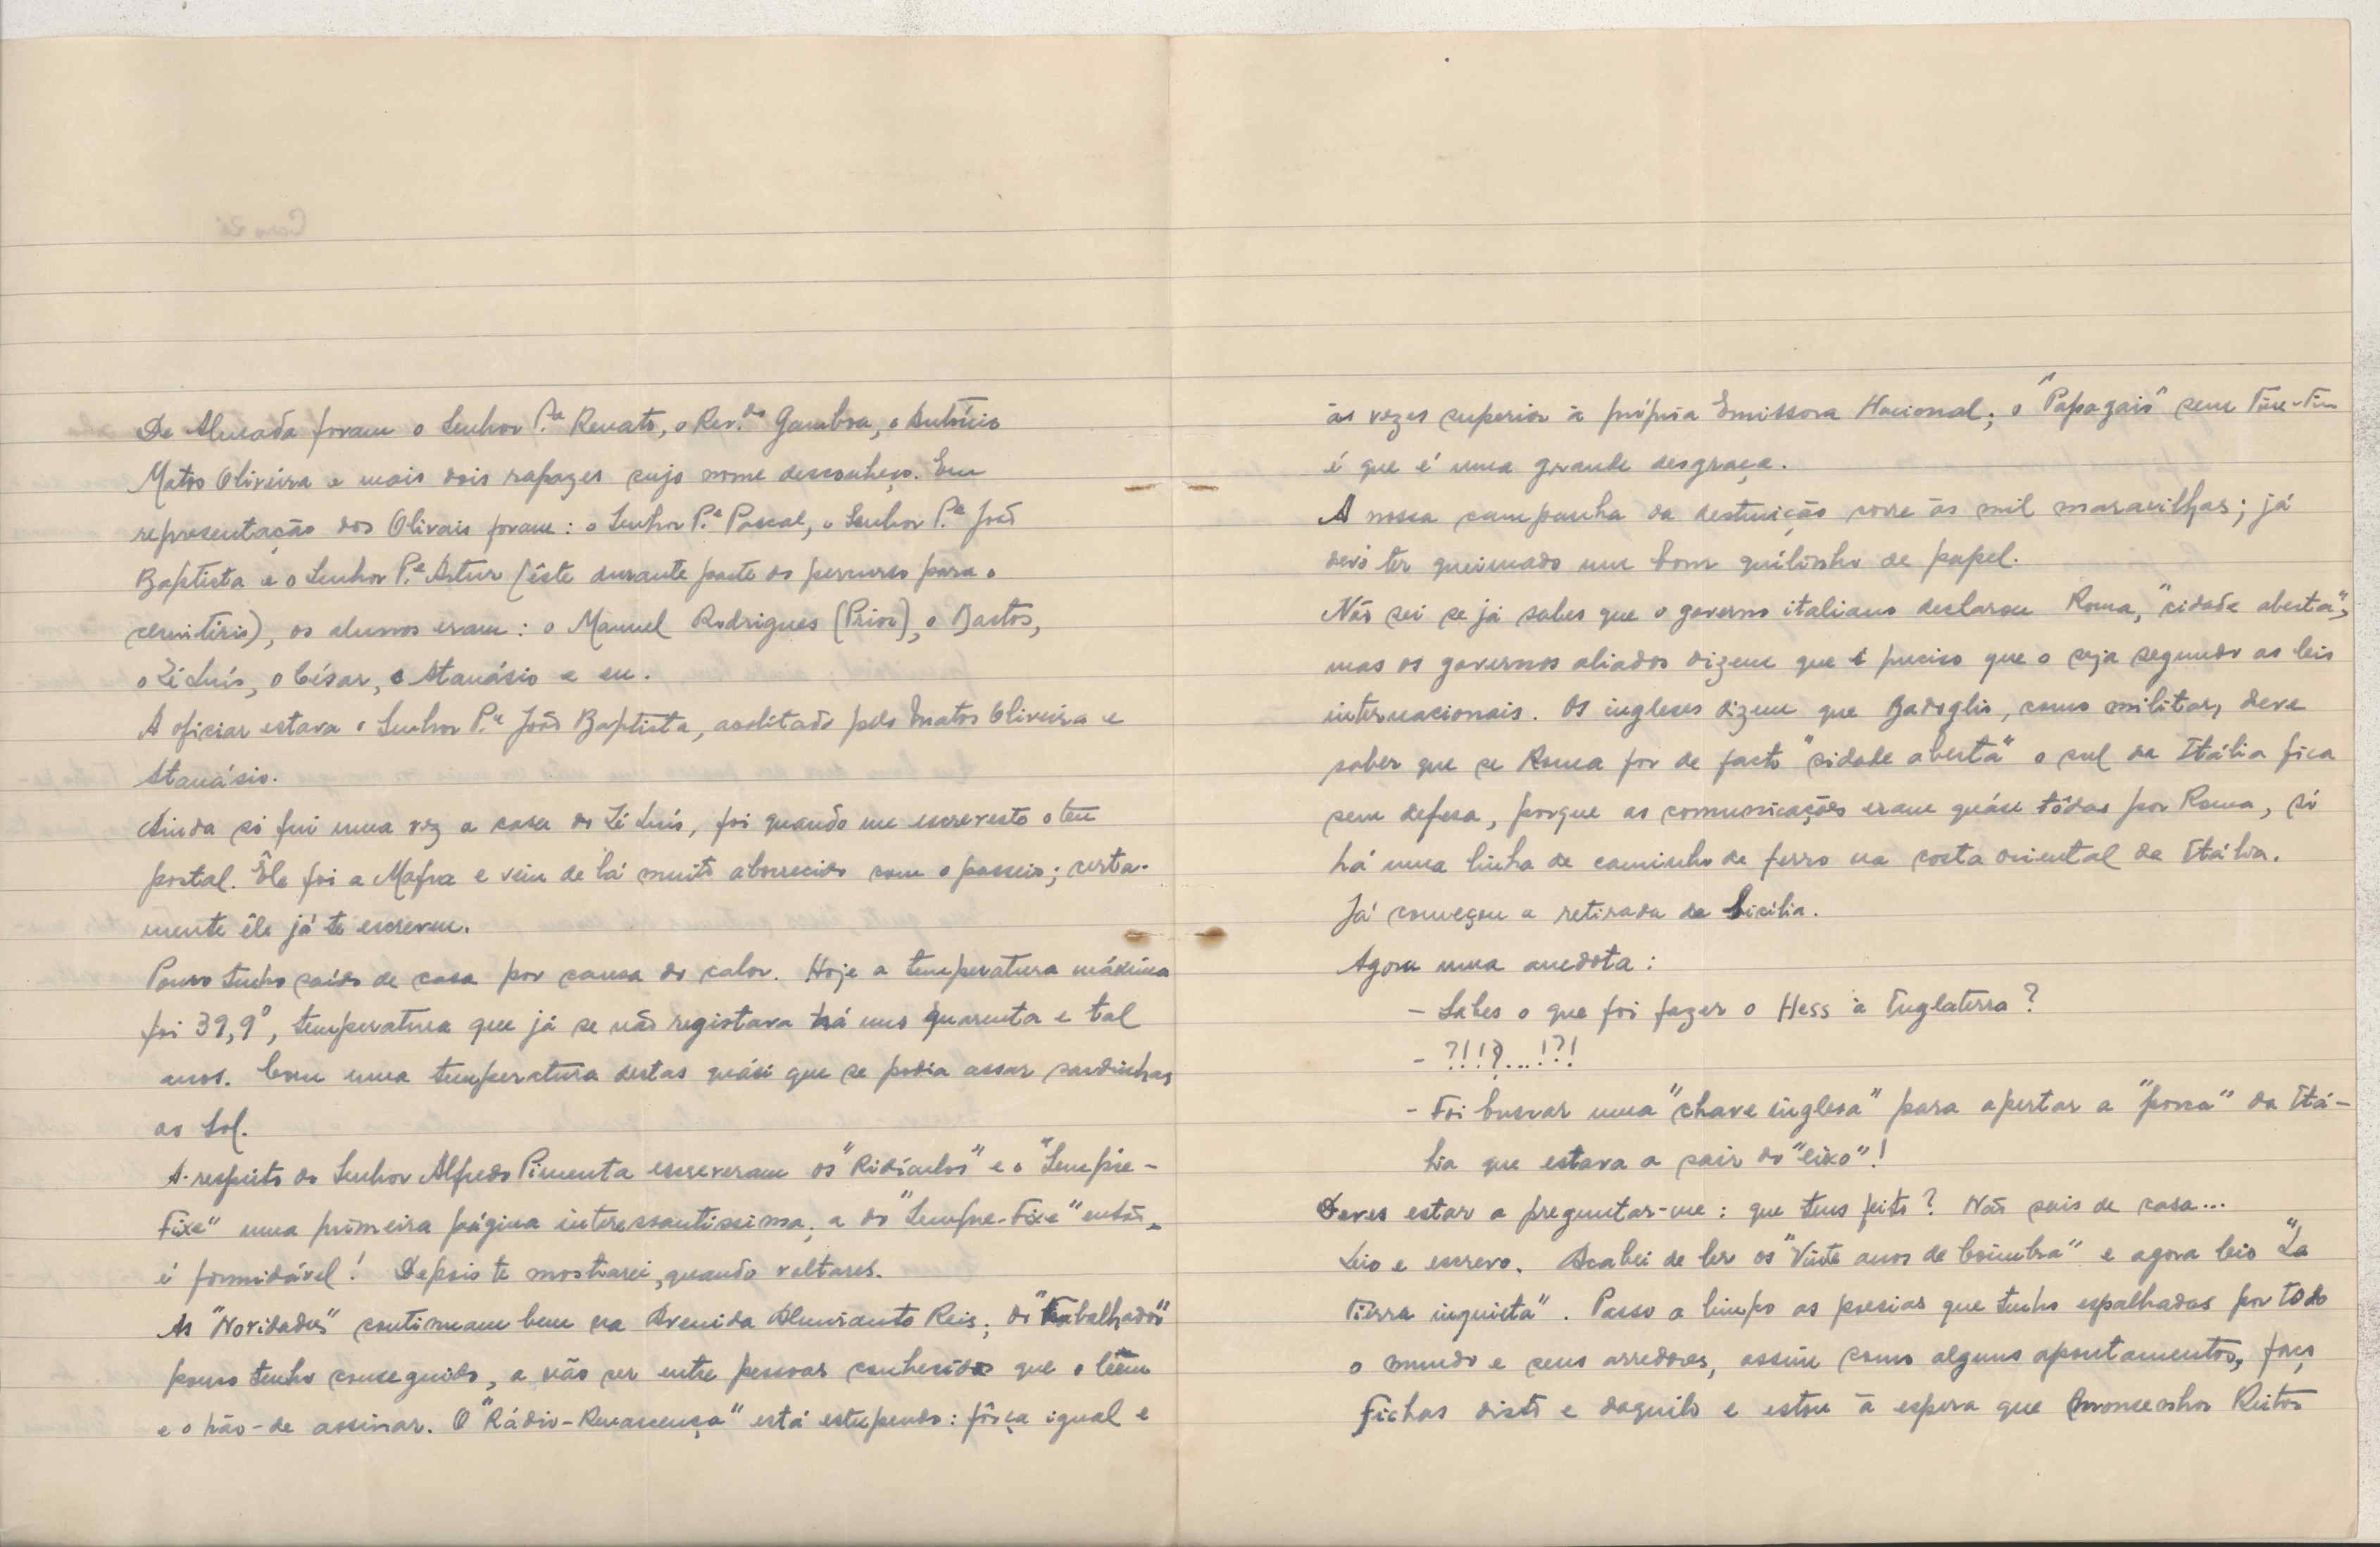 De Almada foram o Senhor P.e Renato, o Rev.do Gamboa, o António
Matos Oliveira e mais dois rapazes cujo nome desconheço. Em
representação dos Olivais foram: o Senhor P.e Pascal, o Senhor P.e João
Baptista e o Senhor P.e Artur (êste durante parte do percurso para o
cemitério), os alunos eram: o Manuel Rodrigues (Prior), o Bastos,
o Zé Luís, o César, o Atanásio e eu.
A oficiar estava o Senhor P.e João Baptista, acolitado pelo Matos Oliveira e
Atanásio.
Ainda só fui uma vez a casa do Zé Luís, foi quando me escreveste o teu
postal. Êle foi a Mafra e veiu de lá muito aborrecido com o passeio; certa-
mente êle já te escreveu.
Pouco tenho saído de casa por causa do calor. Hoje a temperatura máxima
foi 39,9º, temperatura que já se não registava há uns quarenta e tal
anos. Com uma temperatura destas quási que se podia assar sardinhas
ao Sol.
A respeito do Senhor Alfredo Pimenta escreveram os "Ridículos" e o "Sempre-
Fixe" uma primeira página interessantíssima; a do "Sempre-Fixe" então
é formidável! Depois te mostrarei, quando voltares.
As "Novidades" continuam bem na Avenida Almirante Reis; do "Trabalhador"
pouco tenho conseguido, a não ser entre pessoas conhecidas que o lêem
e o hão-de assinar. O "Rádio-Renascença" está estupendo: fôrça igual e
às vezes superior à própria Emissora Nacional; o "Papagaio" sem Tim-Tim
é que é uma grande desgraça.
A nossa campanha da destruição corre às mil maravilhas; já
devo ter queimado um bom quilinho de papel.
Não sei se já sabes que o governo italiano declarou Roma, "cidade aberta",
mas os governos aliados dizem que é preciso que o seja segundo as leis
internacionais. Os ingleses dizem que Badoglio, como militar, deve
saber que se Roma for de facto "cidade aberta" o sul da Itália fica
sem defesa, porque as comunicações eram quási tôdas por Roma, só
há uma linha de caminho de ferro na costa oriental da Itália.
Já começou a retirada da Sicília.
Agora uma anedota:
- Sabes o que foi fazer o Hess à Inglaterra?
- ?!!?...!?!
- Foi buscar uma "chave inglesa" para apertar a "porca" da Itá-
lia que estava a sair do "eixo"!
Deves estar a preguntar-me: que tens feito? Não sais de casa...
Leio e escrevo. Acabei de ler os "Vinte anos de Coimbra" e agora leio "La
Tierra inquieta". Passo a limpo as poesias que tenho espalhadas por todo
o mundo e seus arredores, assim como alguns apontamentos, faço
fichas disto e daquilo e estou à espera que Monsenhor Reitor